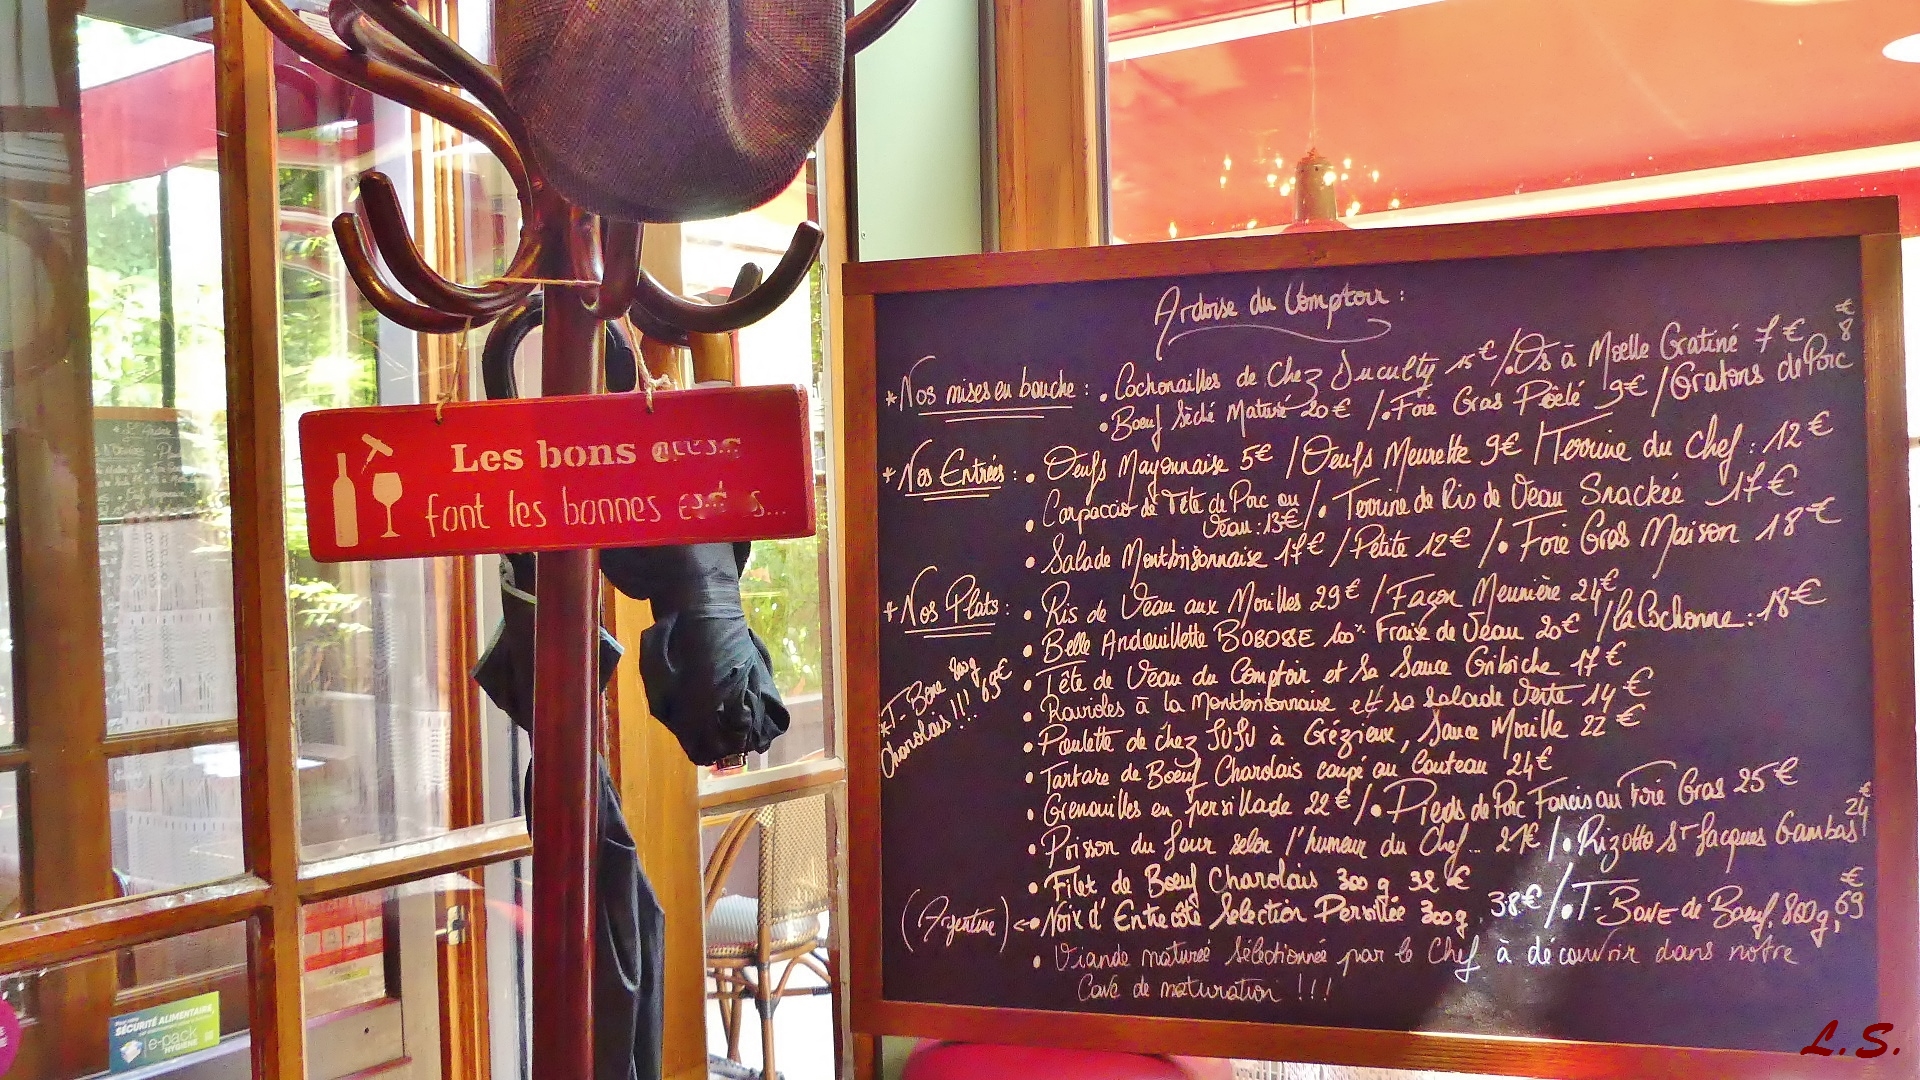 Les bons
font les bonnes
SÉCURITÉ ALIMENTAIRE
e-pack
HYGIÈNE
Ardoise du Comptoir :
* Nos mises en bouche : • Cochonailles de Chez Duculty 15€ / • Os à Moelle Gratiné 7€
• Boeuf Séché Maturé 20€ / • Foie Gras Poêlé 9€ / Gratons de Porc 8€
* Nos Entrées : • Oeufs Mayonnaise 5€ / Oeufs Meurette 9€ / Terrine du Chef : 12€
• Carpaccio de Tête de Porc ou Veau : 13€ / • Terrine de Ris de Veau Snackée 17€
• Salade Montbrisonnaise 17€ / Petite 12€ / • Foie Gras Maison 18€
* Nos Plats : • Ris de Veau aux Morilles 29€ / Façon Meunière 24€
• Belle Andouillette BOBOSSE 100% Fraise de Veau 20€ / la Cochonne : 18€
• Tête de Veau du Comptoir et Sa Sauce Gribiche 17€
• Ravioles à la Montbrisonnaise et sa Salade Verte 14€
* T-Bone 800g
Charolais !!! 69€
• Poulette de chez JUJU à Grézieux, Sauce Morille 22€
• Tartare de Boeuf Charolais coupé au Couteau 24€
• Grenouilles en persillade 22€ / • Pieds de Porc Farcis au Foie Gras 25€
• Poisson du Jour selon l'humeur du Chef... 21€ / • Rizotto St Jacques Gambas 24€
• Filet de Boeuf Charolais 300g 32€
(Argentine) ← • Noix d'Entrecôte Selection Persillée 300g 38€ / • T-BONE de Boeuf, 800g, 69€
• Viande maturée Sélectionnée par le Chef à découvrir dans notre
Cave de maturation !!!
L.S.